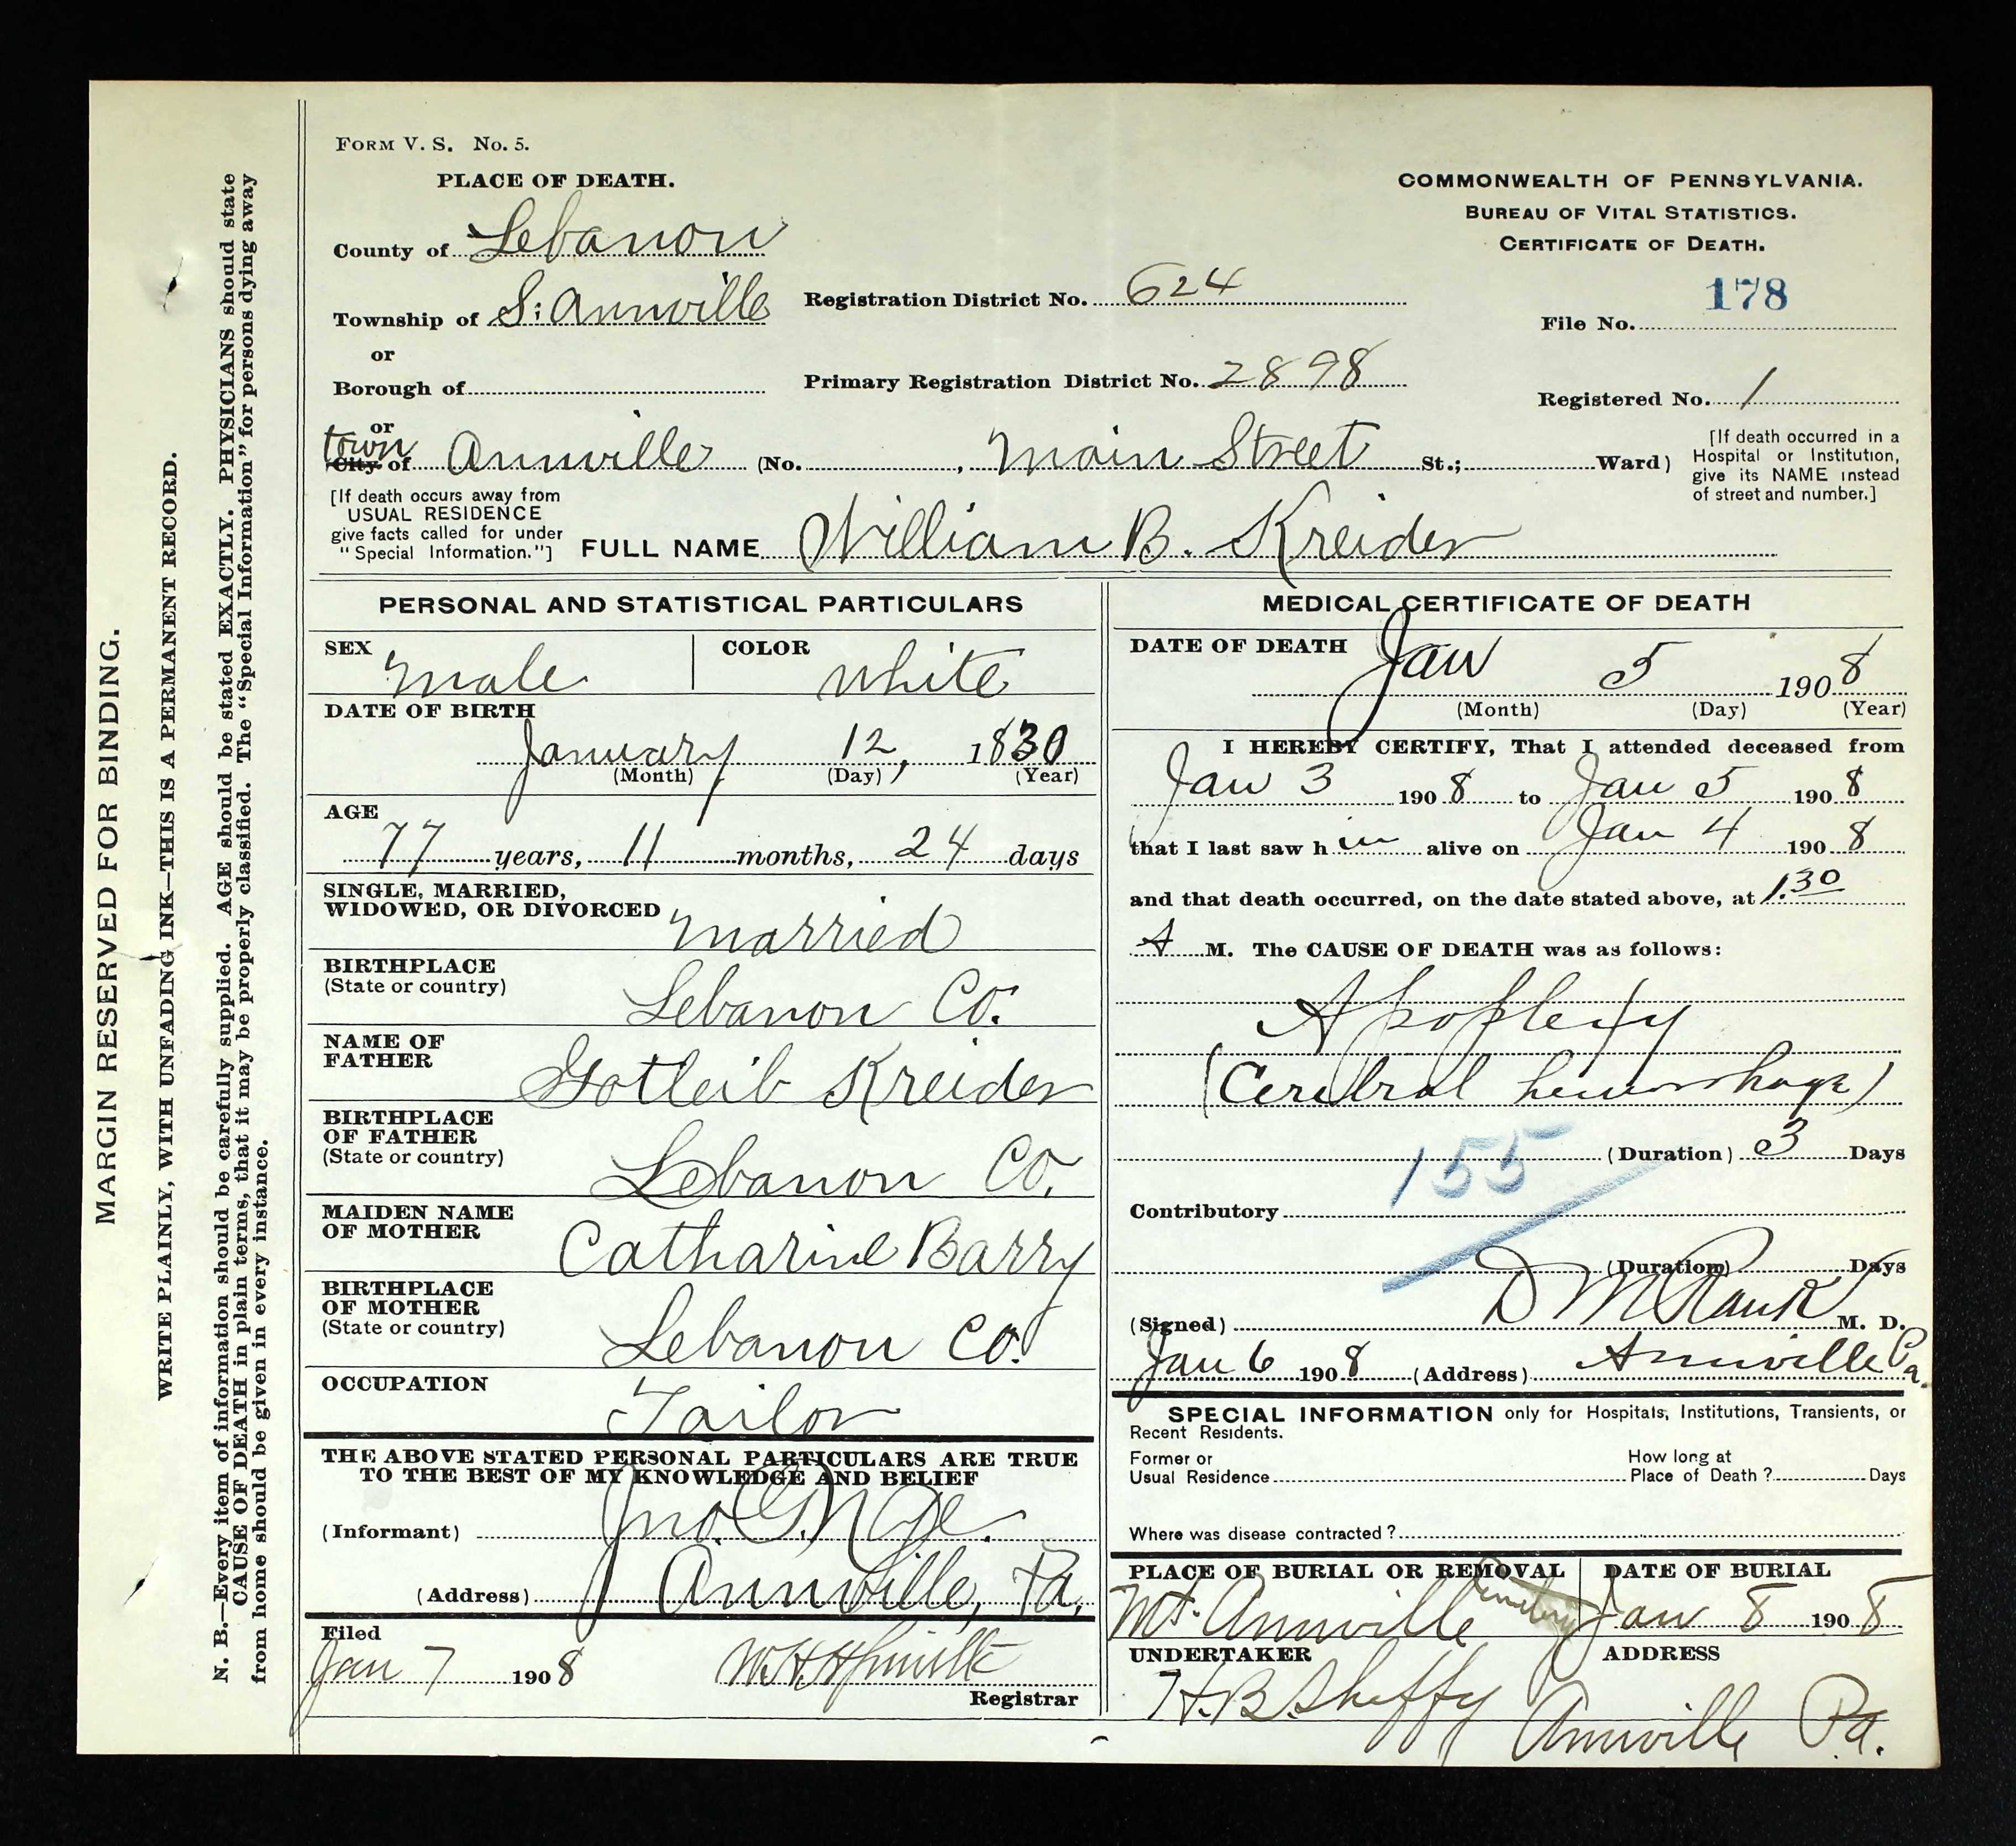 MARGIN RESERVED FOR BINDING.
WRITE PLAINLY, WITH UNFADING INK—THIS IS A PERMANENT RECORD.
N. B.—Every item of information should be carefully supplied. AGE should be stated EXACTLY. PHYSICIANS should state
CAUSE OF DEATH in plain terms, that it may be properly classified. The "Special Information" for persons dying away
from home should be given in every instance.
FORM V. S. No. 5.
PLACE OF DEATH.
COMMONWEALTH OF PENNSYLVANIA.
BUREAU OF VITAL STATISTICS.
CERTIFICATE OF DEATH.
County of Lebanon
Township of S. Annville
Registration District No. 624
178
File No.
or
Borough of
Primary Registration District No. 2898
Registered No. 1
or
town
City of Annville (No. , Main Street St.; Ward)
[If death occurred in a
Hospital or Institution,
give its NAME instead
of street and number.]
[If death occurs away from
USUAL RESIDENCE
give facts called for under
"Special Information."]
FULL NAME William B. Kreider
PERSONAL AND STATISTICAL PARTICULARS
SEX Male
COLOR White
DATE OF BIRTH
January 12, 1830
(Month) (Day) (Year)
AGE
77 years, 11 months, 24 days
SINGLE, MARRIED,
WIDOWED, OR DIVORCED Married
BIRTHPLACE
(State or country)
Lebanon Co.
NAME OF
FATHER
Gotleib Kreider
BIRTHPLACE
OF FATHER
(State or country)
Lebanon Co.
MAIDEN NAME
OF MOTHER
Catharine Barry
BIRTHPLACE
OF MOTHER
(State or country)
Lebanon Co.
OCCUPATION
Tailor
THE ABOVE STATED PERSONAL PARTICULARS ARE TRUE
TO THE BEST OF MY KNOWLEDGE AND BELIEF
(Informant) Jno. G. Nye.
(Address) Annville, Pa.
Filed
Jan 7 1908
Registrar
MEDICAL CERTIFICATE OF DEATH
DATE OF DEATH
Jan 5 1908
(Month) (Day) (Year)
I HEREBY CERTIFY, That I attended deceased from
Jan 3 1908 to Jan 5 1908
that I last saw h im alive on Jan 4 1908
and that death occurred, on the date stated above, at 1.30
A M. The CAUSE OF DEATH was as follows:
Apoplexy
(Cerebral hemorrhage)
155
(Duration) 3 Days
Contributory
(Duration) Days
(Signed) D M Rank M. D.
Jan 6 1908 (Address) Annville Pa.
SPECIAL INFORMATION only for Hospitals, Institutions, Transients, or
Recent Residents.
Former or
Usual Residence
How long at
Place of Death? Days
Where was disease contracted?
PLACE OF BURIAL OR REMOVAL
Mt. Annville Cemetery
DATE OF BURIAL
Jan 8 1908
UNDERTAKER
H. B. Sheffy
ADDRESS
Annville Pa.